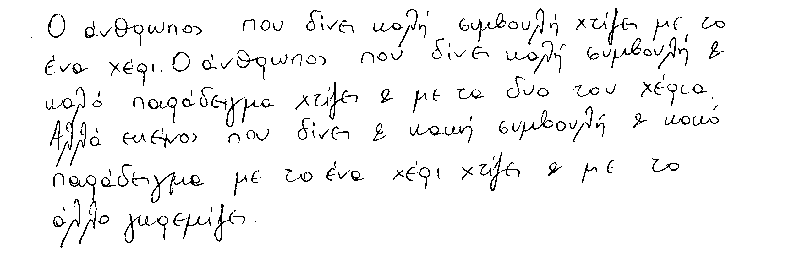 Ο άνθρωπος που δίνει καλή συμβουλή χτίζει με το
ένα χέρι. Ο άνθρωπος που δίνει καλή συμβουλή &
καλό παράδειγμα χτίζει & με τα δυο του χέρια.
Αλλά εκείνος που δίνει & κακή συμβουλή & κακό
παράδειγμα με το ένα χέρι χτίζει & με το
άλλο γκρεμίζει.